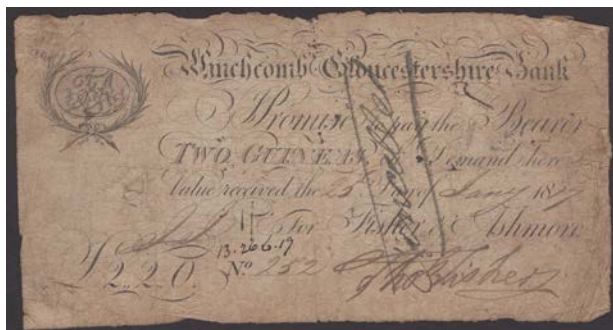 Winchcomb Gloucestershire Bank
I Promise to pay the Bearer
TWO GUINEAS on Demand here
Value received the 25 Day of Jany 18
For Fisher & Ashmore
13.266.17
£2.2.0. No 252 Thos Fisher